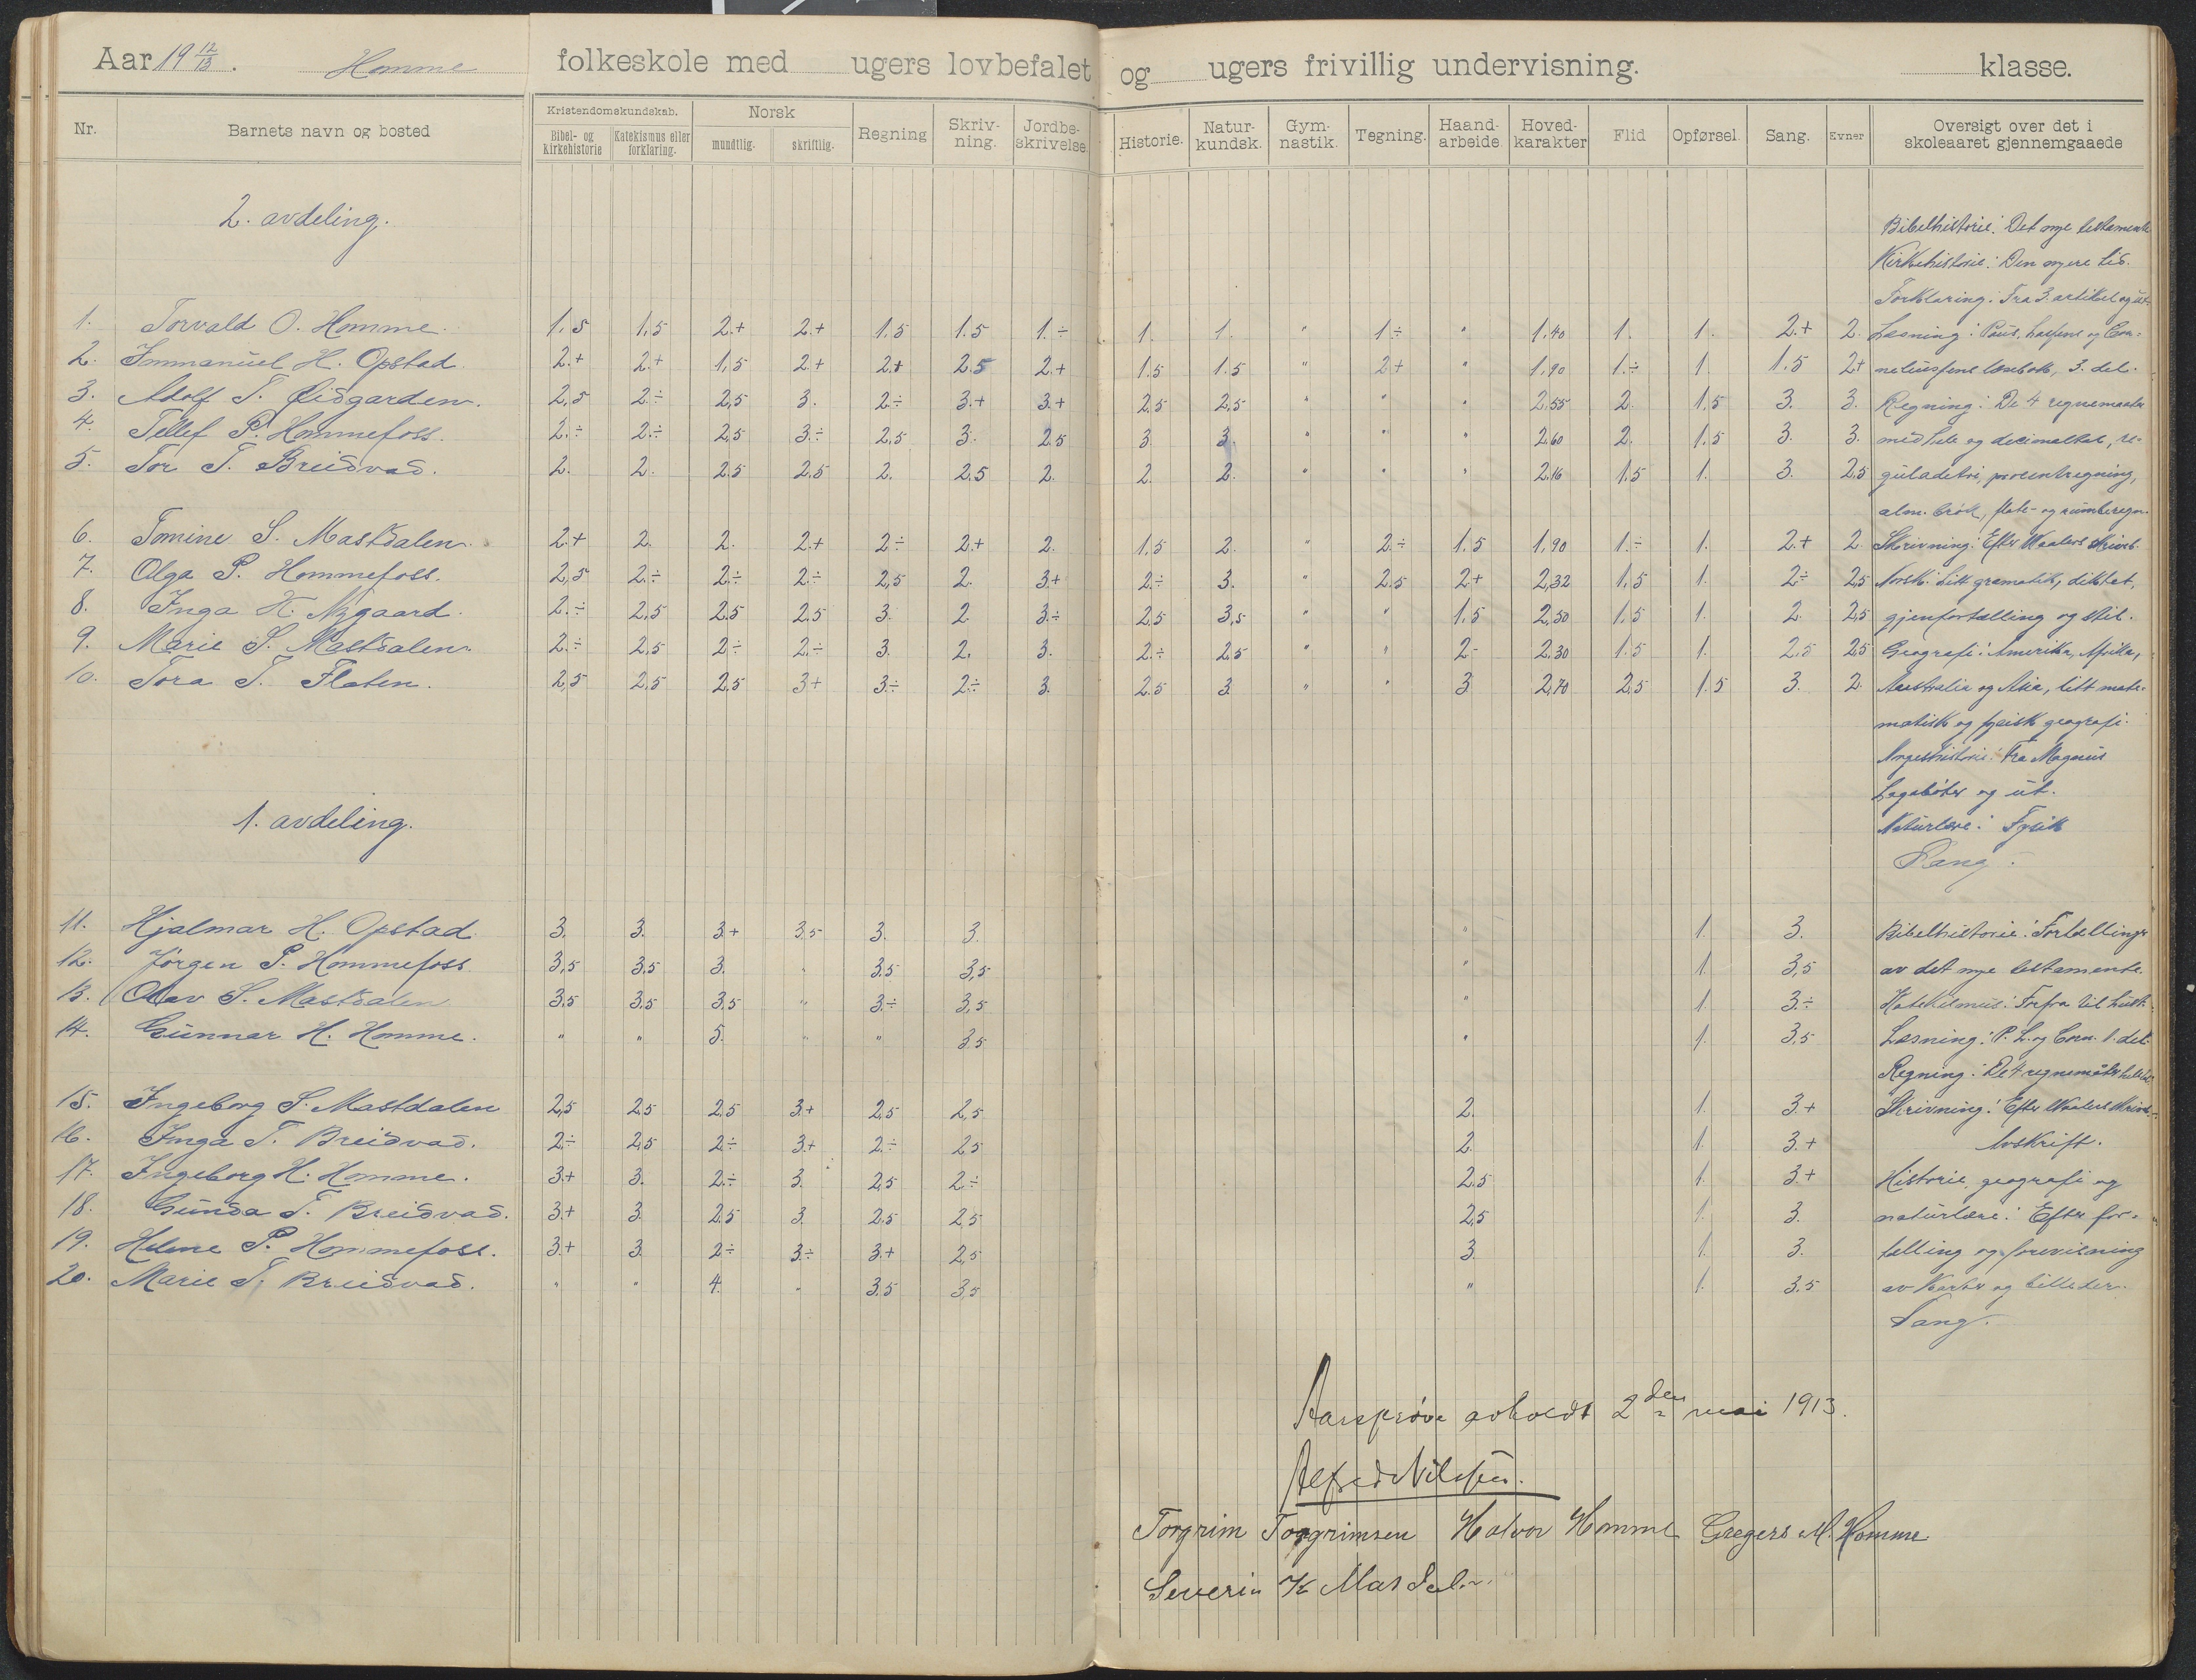 Aar 19 12/13. Homme folkeskole med ugers lovbefalet og ugers frivillig undervisning. klasse.
Nr. Barnets navn og bosted Kristendomskundskab. Bibel- og kirkehistorie Katekismus eller forklaring. Norsk mundtlig. skriftlig. Regning Skriv-ning. Jordbe-skrivelse. Historie. Natur-kundsk. Gym-nastik. Tegning. Haand-arbeide. Hoved-karakter Flid Opførsel. Sang. Evner Oversigt over det i skoleaaret gjennemgaaede
2. avdeling. Bibelhistorie: Det nye testamente
Kirkehistorie: Den nyere tid.
Forklaring: Fra 3. artikel og ut.
1. Torvald O. Homme. 1,5 1,5 2.+ 2.+ 1,5 1.5 1.÷ 1. 1. " 1÷ " 1,40 1. 1. 2.+ 2. Læsning: Paus, Lassens og Cor-
2. Immanuel H. Opstad. 2.+ 2.+ 1,5 2.+ 2.+ 2.5 2.+ 1.5 1.5 " 2+ " 1,90 1.÷ 1. 1.5 2+ neliussens læsebok, 3. del.
3. Adolf T. Øidgarden. 2,5 2.÷ 2,5 3. 2.÷ 3.+ 3.+ 2,5 2,5 " " " 2.55 2. 1,5 3. 3. Regning: De 4 regnemaater
4. Tellef P. Hommefoss. 2.÷ 2.÷ 2,5 3.÷ 2,5 3. 2.5 3. 3. " " " 2.60 2. 1.5 3. 3. med hele og decimaltal, re-
5. Tor T. Breidvad. 2. 2. 2.5 2.5 2. 2,5 2. 2. 2. " " " 2.16 1,5 1. 3. 2,5 guladetri, procentregning,
alm. brøk, flate- og rumberegn.
6. Tomine S. Mastdalen. 2.+ 2. 2. 2.+ 2.÷ 2.+ 2. 1.5 2. " 2.÷ 1.5 1,90 1.÷ 1. 2.+ 2. Skrivning: Efter Maalers skriveb.
7. Olga P. Hommefoss. 2,5 2.÷ 2.÷ 2.÷ 2,5 2. 3+ 2.÷ 3. " 2.5 2+ 2,32 1,5 1. 2÷ 2,5 Norsk: Litt gramatik, diktat,
8. Inga H. Nygaard. 2.÷ 2,5 2.5 2.5 3. 2. 3.÷ 2,5 3,5 " " 1.5 2,50 1,5 1. 2. 2,5 gjenfortælling og stil.
9. Marie S. Mastdalen. 2.÷ 2,5 2.÷ 2.÷ 3. 2. 3. 2.÷ 2.5 " " 2- 2.30 1.5 1. 2,5 2,5 Geografi: Amerika, Afrika,
10. Tora T. Flaten. 2,5 2.5 2.5 3+ 3.÷ 2.÷ 3. 2.5 3. " " 3 2,70 2,5 1.5 3. 2. Australia og Asia, litt mate-
matisk og fysisk geografi.
Norgeshistorie: Fra Magnus
Lagabøter og ut.
1. avdeling. Naturlære: Fysik
Sang.
11. Hjalmar H. Opstad. 3. 3. 3+ 3.5 3. 3. " 1. 3. Bibelhistorie: Fortællinger
12. Jørgen P. Hommefoss 3,5 3.5 3. " 3.5 3,5 " 1. 3,5 av det nye testamente.
13. Olav S. Mastdalen 3.5 3.5 3,5 " 3.÷ 3,5 " 1. 3.÷ Katekismus: Forfra til
14. Gunnar H. Homme. " " 5. " " 3.5 " 1. 3,5 Læsning: P. L. og Corn. 1. del.
Regning: De 4 regnemåter
15. Ingeborg S. Mastdalen 2,5 2,5 2,5 3+ 2,5 2,5 2. 1. 3.+ Skrivning: Efter Maalers skriveb.
16. Inga T. Breidvad. 2.÷ 2,5 2.÷ 3.+ 2.÷ 2.5 2. 1. 3.+ Avskrift.
17. Ingeborg H. Homme. 3.+ 3. 2.÷ 3. 2,5 2.÷ 2.5 1. 3.+ Historie, geografi og
18. Gunda T. Breidvad. 3.+ 3. 2.5 3. 2.5 2,5 2,5 1. 3. naturlære: Efter for-
19. Helene P. Hommefoss. 3.+ 3. 2.÷ 3.÷ 3.+ 2,5 3. 1. 3. tælling og forevisning
20. Marie T. Breidvad. " " 4. " 3.5 3,5 " 1. 3.5 av karter og billeder.
Sang.
Aarsprøve avholdt 2den mai 1913.
Alfred Nilssen.
Torgrim Torgrimsen Halvor Homme Gregers M. Homme
Severin K Masdalen